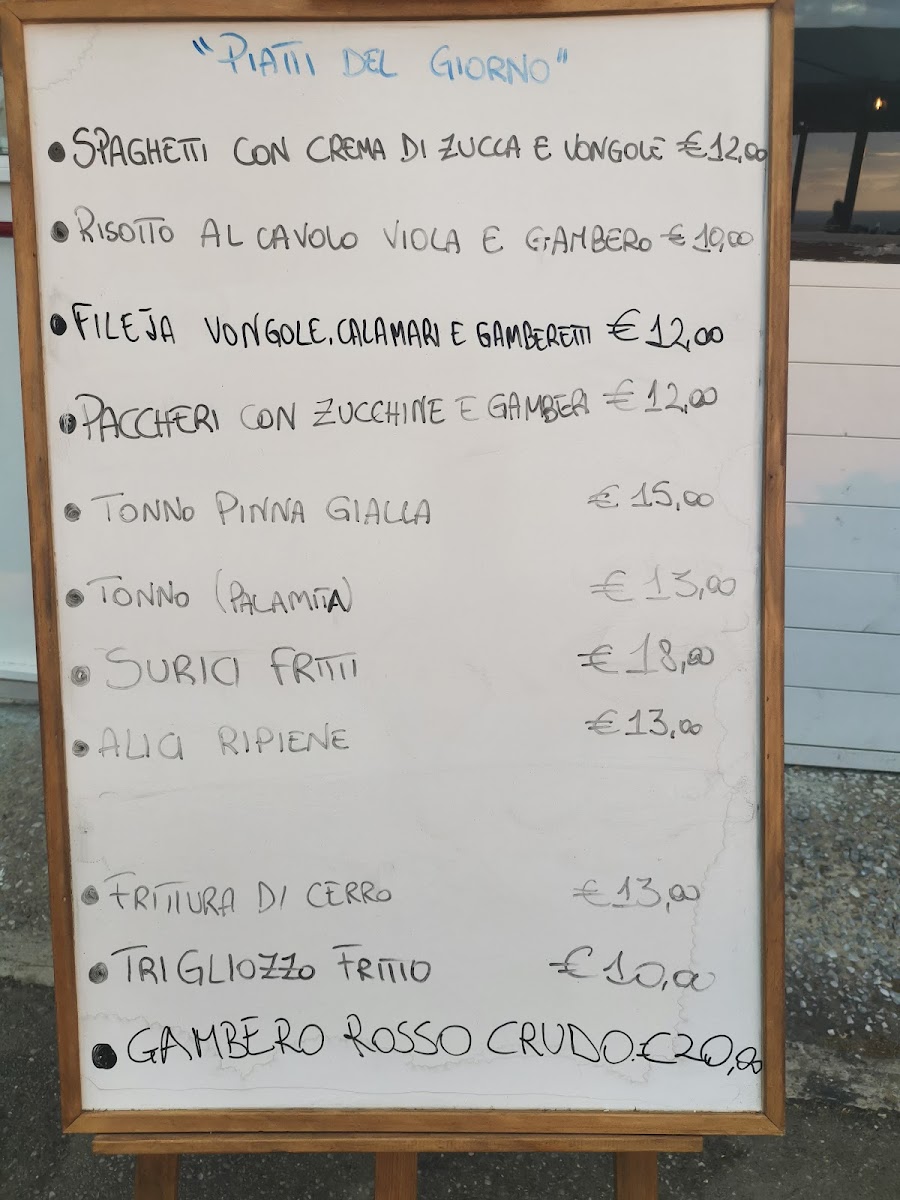 "PIATTI DEL GIORNO"
• SPAGHETTI CON CREMA DI ZUCCA E VONGOLE €12,00
• RISOTTO AL CAVOLO VIOLA E GAMBERO € 10,00
• FILEJA VONGOLE, CALAMARI E GAMBERETTI € 12,00
• PACCHERI CON ZUCCHINE E GAMBERI € 12,00
• TONNO PINNA GIALLA € 15,00
• TONNO (PALAMITA) € 13,00
• SURICI FRITTI € 18,00
• ALICI RIPIENE € 13,00
• FRITTURA DI CERRO € 13,00
• TRIGLIOZZO FRITTO € 10,00
• GAMBERO ROSSO CRUDO. € 20,00